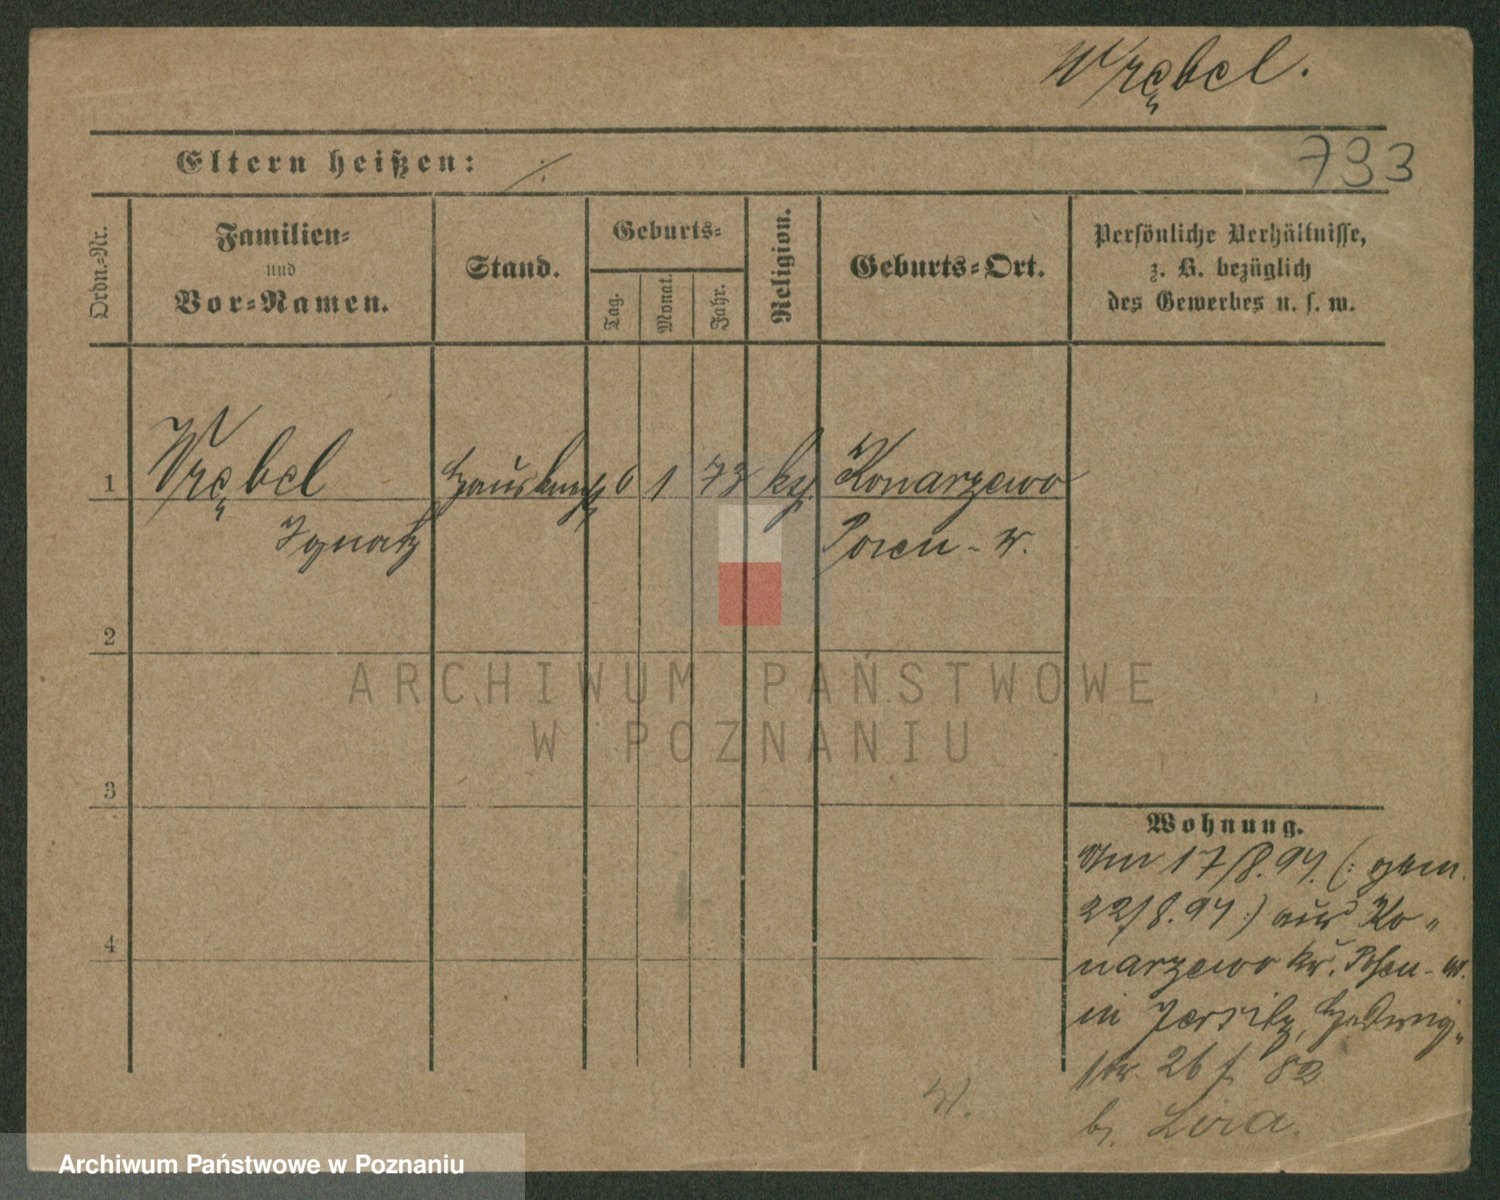 Wrębel.
Eltern heißen: ·/·
793
Ordn.-Nr.
Familien-
und
Vor-Namen.
Stand.
Geburts-
Tag.
Monat.
Jahr.
Religion.
Geburts-Ort.
Persönliche Verhältnisse,
z. B. bezüglich
des Gewerbes u. s. w.
1 Wrębel Hausknecht 6 1 73 kt. Konarzewo
Ignatz Posen - W.
2
3
4
ARCHIWUM PAŃSTWOWE
W POZNANIU
Wohnung.
Am 17/8.97. (: gem.
22/8.97 :) aus Ko-
narzewo Kr. Posen - W.
in Jersitz, Hedwig-
str. 26
W.
Archiwum Państwowe w Poznaniu